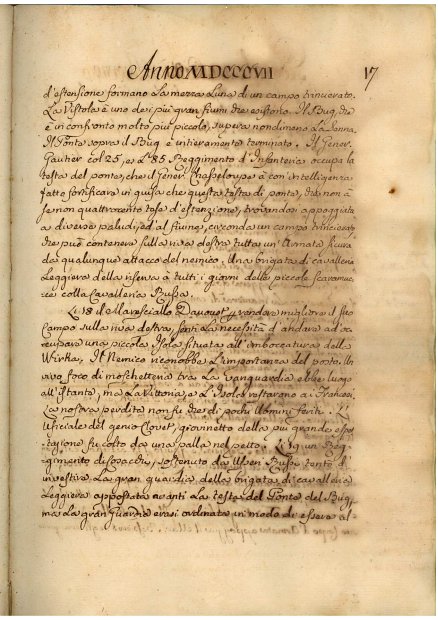 Anno MDCCCVII
17
d'estensione formano La mezza Luna di un campo trincerato.
La Vistola è uno de i più gran fiumi che esistono. Il Bug, che
è in confronto molto più piccolo, supera nondimeno La Senna.
Il Ponte sopra il Bug è intieramente terminato. Il Gener.
Gautier col 25, e L'85 Reggimento d'Infanteria occupa la
testa del ponte, che il Gener. Chasseloupe à con intelligenza
fatto fortificare in guisa che questa testa di ponte, che non à
se non quattrocento tese d'estenzione, trovandosi appoggiata
a diverse paludi, ed al fiume, circonda un campo trincerato,
che può contenere sulla riva destra tutta un'Armata sicura
da qualunque attacco del nemico. Una brigata di cavalleria
Leggiera della riserva à tutti i giorni delle piccole scaramuc-
cie colla Cavalleria Russa.
Li 18 il Maresciallo Davoust per rendere migliore il suo
Campo sulla riva destra, sentì La necessità d'andare ad oc-
cupare una piccola Isola situata all'imboccatura della
Wirka. Il Nemico riconobbe L'importanza del posto. Un
vivo foco di moschetteria tra La Vanguardia ebbe luogo
all'istante, ma La Vittoria, e L'Isola restarono a i Francesi.
La nostra perdita non fu che di pochi Uomini feriti. L'
Uficiale del genio Clovet, giovinetto della più grande espet-
tazione fu colto da una palla nel petto. Li 19 un Reg-
gimento di Cosacchi, sostenuto da Usseri Russi tentò d'
investire La gran guardia della brigata di cavalleria
Leggiera appostata avanti La testa del Ponte del Bug,
ma La gran Guardia erasi ordinata in modo di essere al-